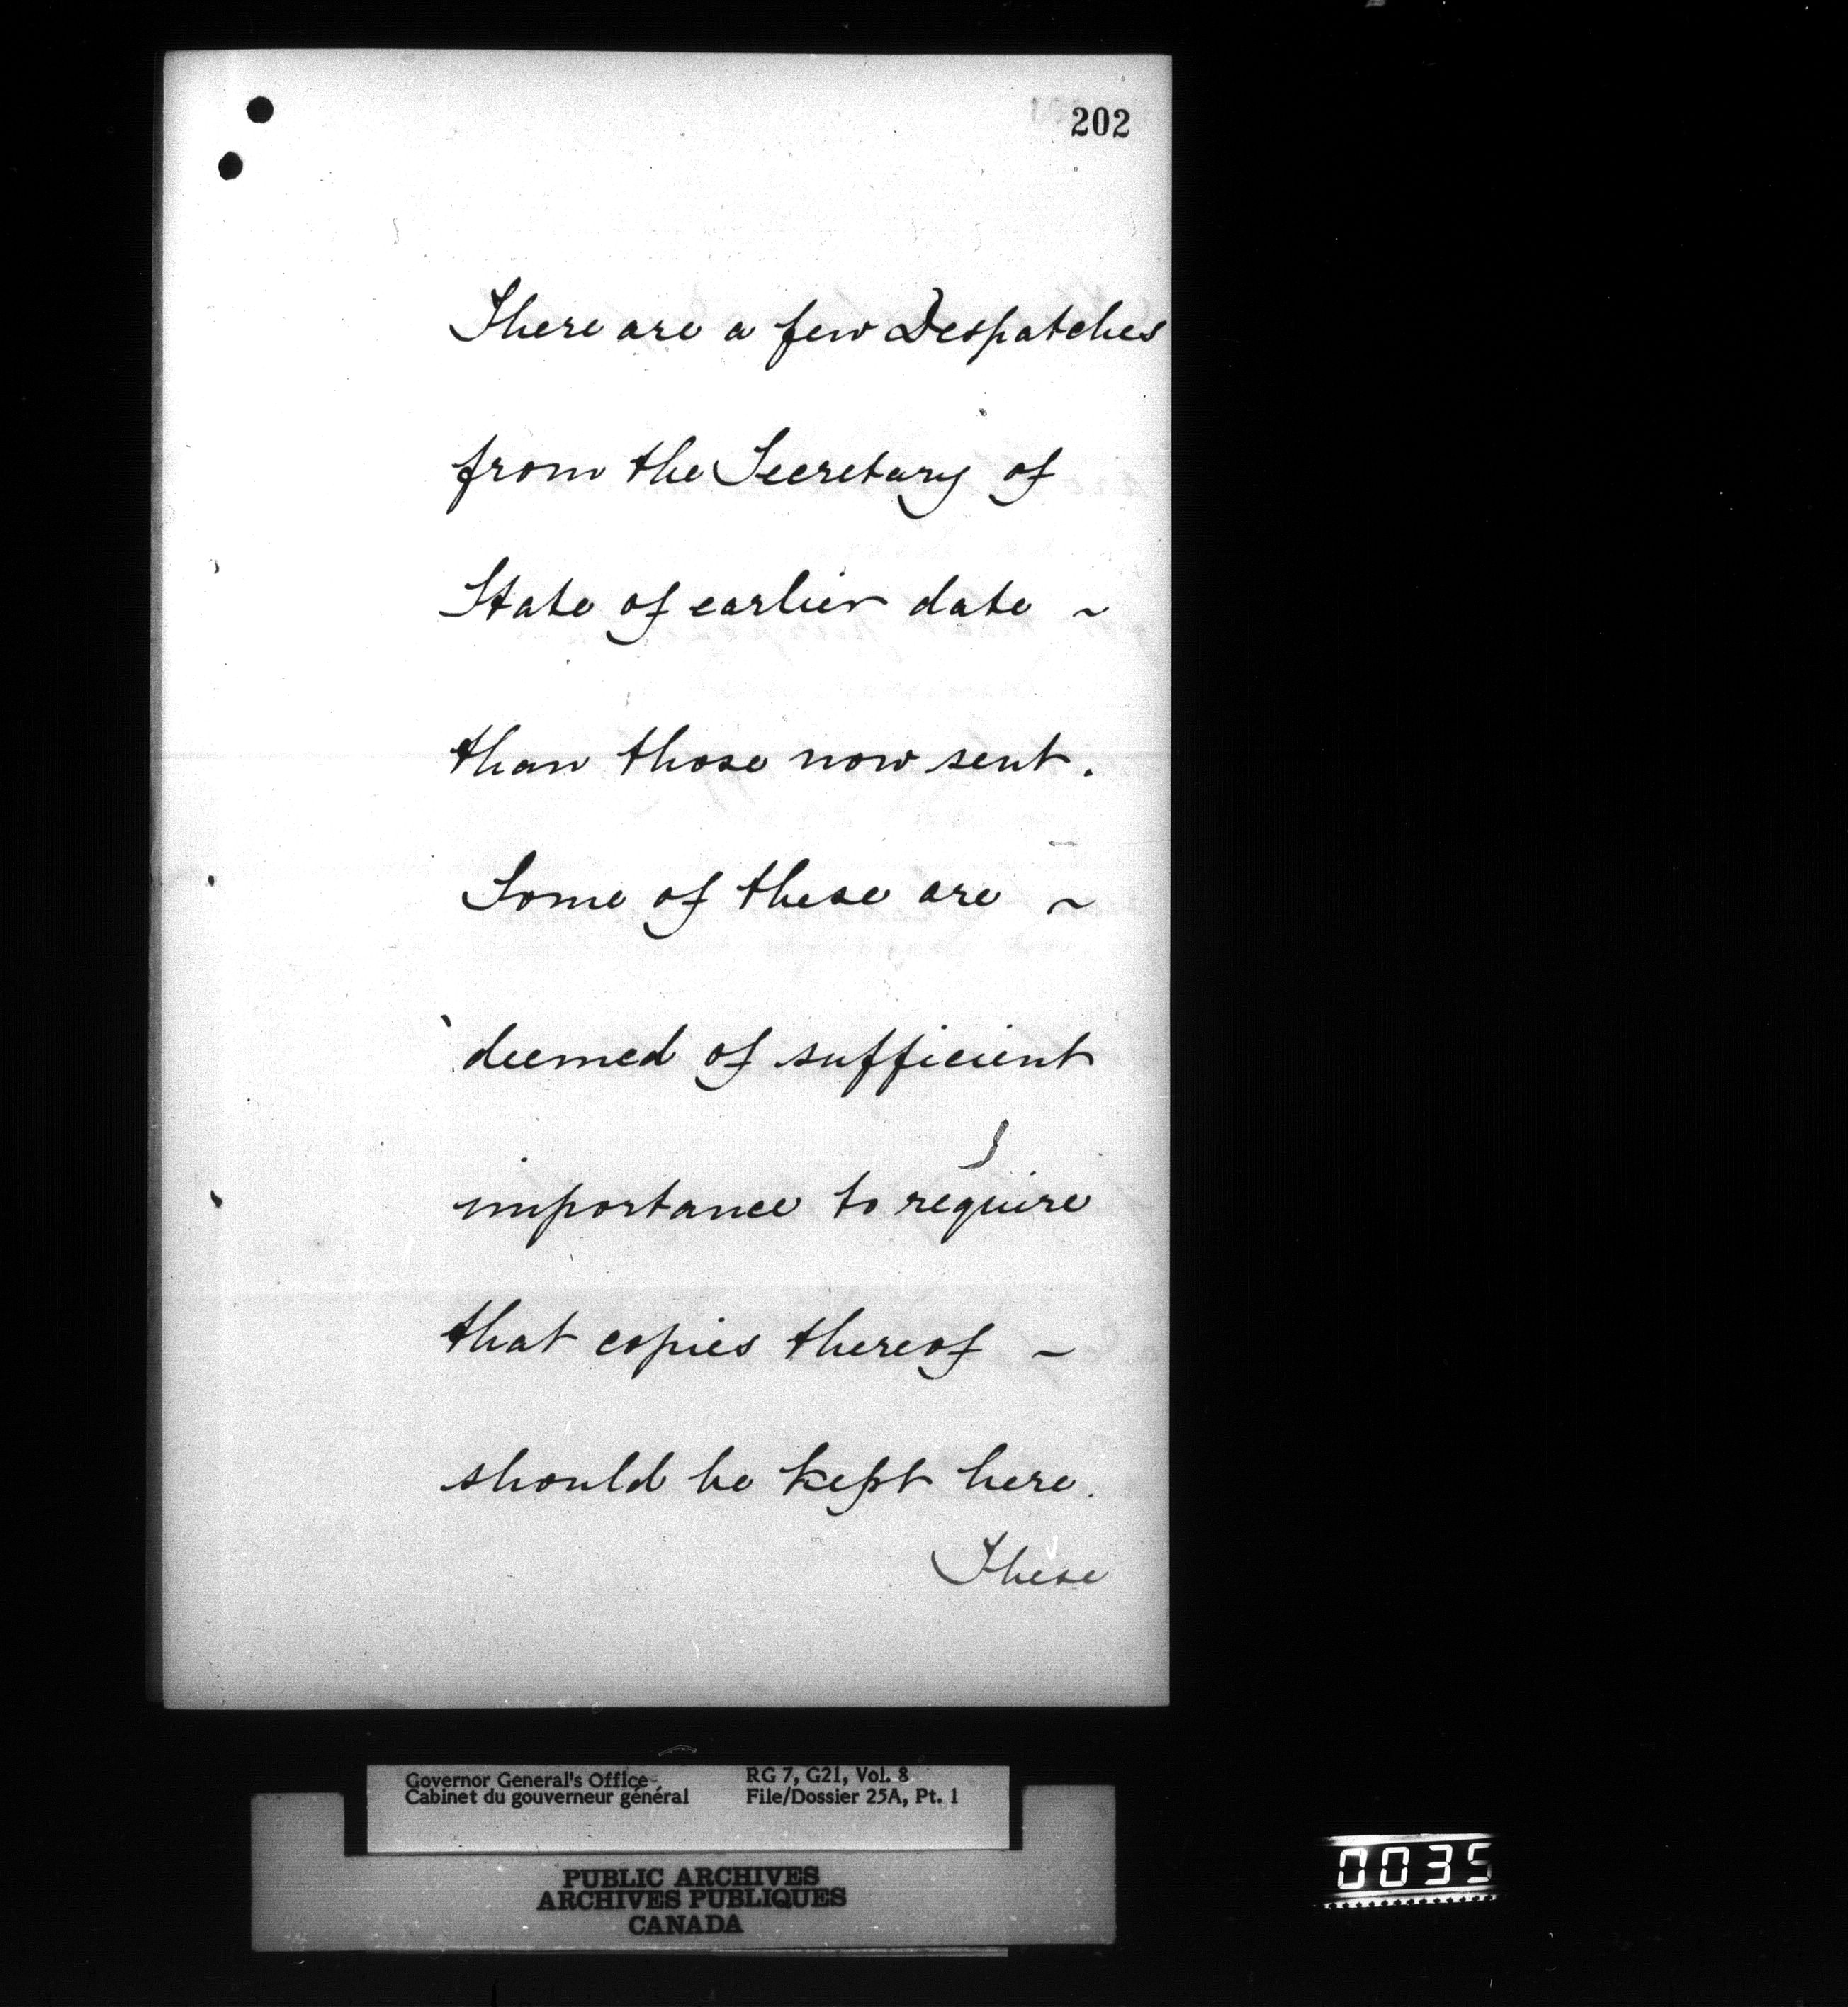 202
There are a few Despatches
from the Secretary of
State of earlier date ~
than those now sent.
Some of these are ~
deemed of sufficient
importance to require
that copies thereof ~
should be kept here.
These
Governor General's Office RG 7, G21, Vol. 8
Cabinet du gouverneur général File/Dossier 25A, Pt. 1
PUBLIC ARCHIVES
ARCHIVES PUBLIQUES
CANADA
0035